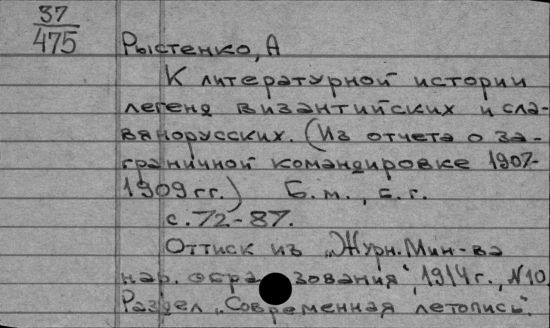 37
475
Рыстенко, А
К литературной истории
легенд византийских и сла-
вянорусских. (Из отчета о за-
граничной командировке 1907-
1909 гг.) Б.м., б.г.
с. 72-87.
Оттиск из "Журн. Мин-ва
нар. образования", 1914 г., №10
Раздел "Современная летопись".